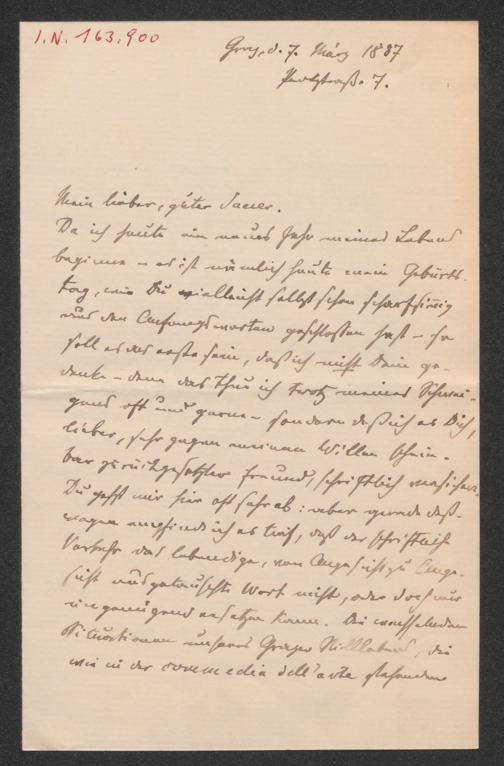 I.N. 163.900
Graz, d. 7. März 1887
straße 7.
Mein lieber, guter Sauer.
Da ich heute ein neues Jahr meines Lebens
beginne – es ist nämlich heute mein Geburts-
tag, wie Du vielleicht selbst schon scharfsinnig
aus den Anfangsworten geschlossen hast – so
soll es das erste sein, daß ich nicht Dein ge-
denke – denn das thue ich trotz meines Schwei-
gens oft und gerne – sondern daß ich es Dich,
lieber, sehr gegen meinen Willen schein-
bar zurückgesetzter Freund, schriftlich versichere.
Du gehst mir hier oft sehr ab: aber gerade deß-
wegen empfinde ich es tief, daß der schriftliche
Verkehr das lebendige, von Angesicht zu Ange-
sicht ausgetauschte Wort nicht, oder doch nur
ungenügend ersetzen kann. Die wechselnden
Situationen unseres Grazer Stilllebens, die
wie in der commedia dell'arte stehenden